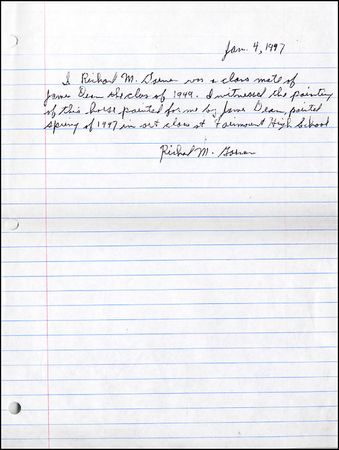 Jan. 4, 1997
I Richard M. was a class mate of
James Dean the class of 1949. I witnessed the painting
of this horse painted for me by James Dean, painted
spring of 1947 in art class at Fairmount High School
Richard M.